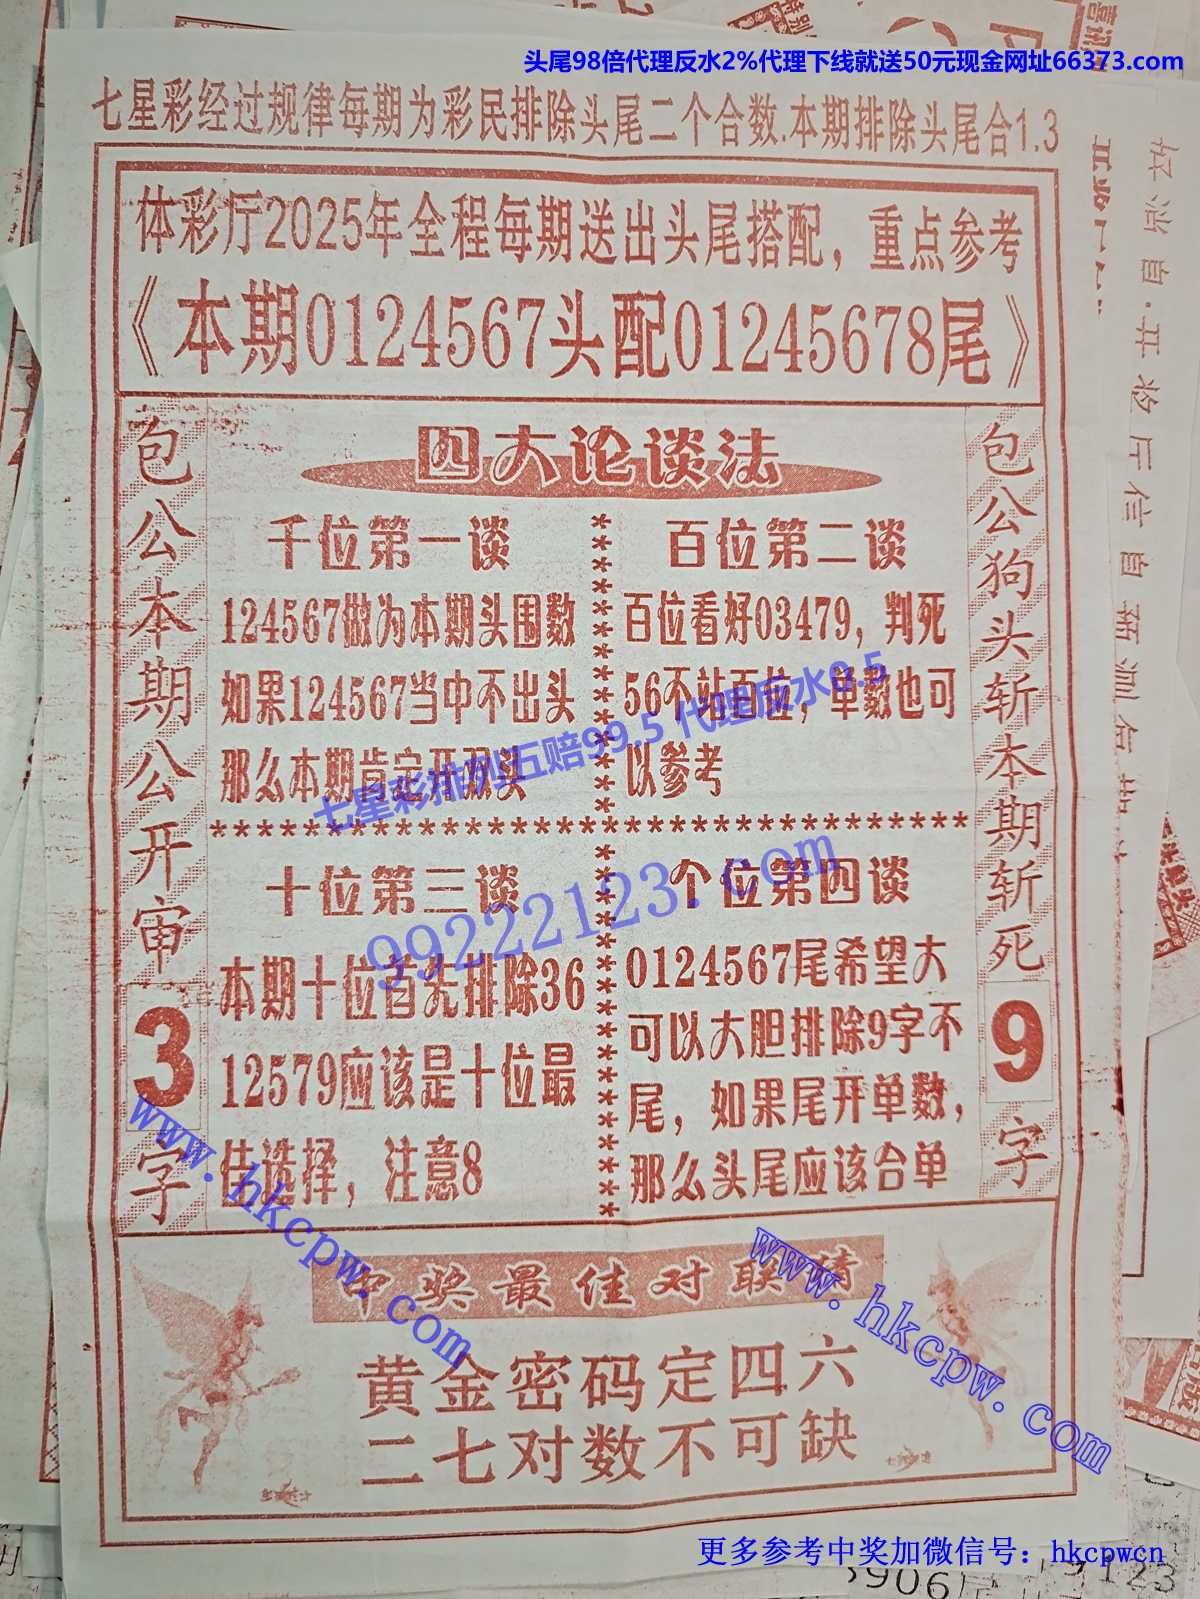 头尾98倍代理反水2%代理下线就送50元现金网址66373.com
七星彩经过规律每期为彩民排除头尾二个合数.本期排除头尾合1.3
体彩厅2025年全程每期送出头尾搭配，重点参考
《本期0124567头配01245678尾》
包公本期公开审3字
四大论谈法
千位第一谈
124567做为本期头围数
如果124567当中不出头
那么本期肯定开双头
百位第二谈
百位看好03479，判死
56不站百位，单数也可
以参考
十位第三谈
本期十位首先排除36
12579应该是十位最
佳选择，注意8
个位第四谈
0124567尾希望大
可以大胆排除9字不
尾，如果尾开单数，
那么头尾应该合单
包公狗头斩本期斩死9字
中奖最佳对联猜
黄金密码定四六
二七对数不可缺
七星彩排列五赔99.5 代理反水8.5
99222123.com
www.hkcpw.com
www.hkcpw.com
更多参考中奖加微信号：hkcpwcn